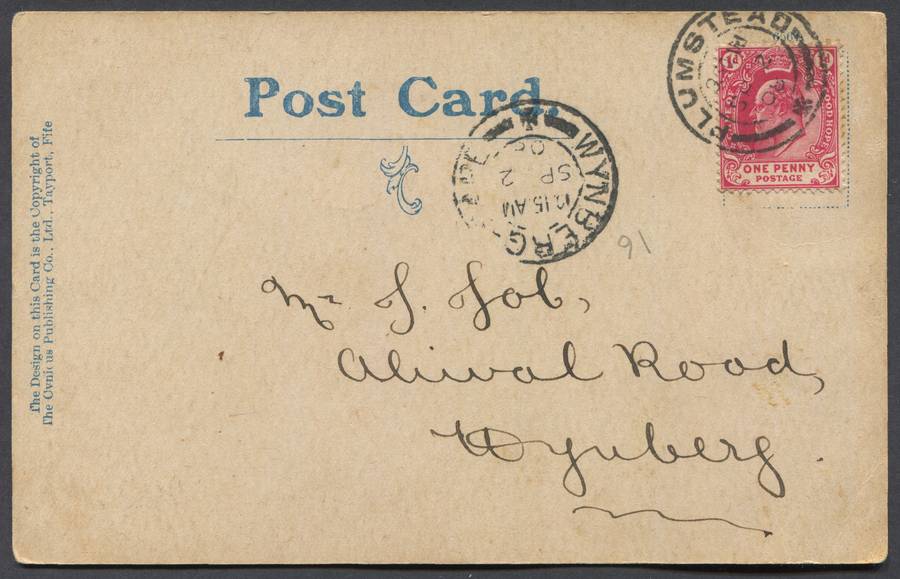 Post Card.
The Design on this Card is the Copyright of
The Cynicus Publishing Co., Ltd., Tayport, Fife
PLUMSTEAD
1d
ONE PENNY
POSTAGE
WYNBERG
12.15 AM
SP 2
91
Mr J. Job,
Aliwal Road,
Wynberg.